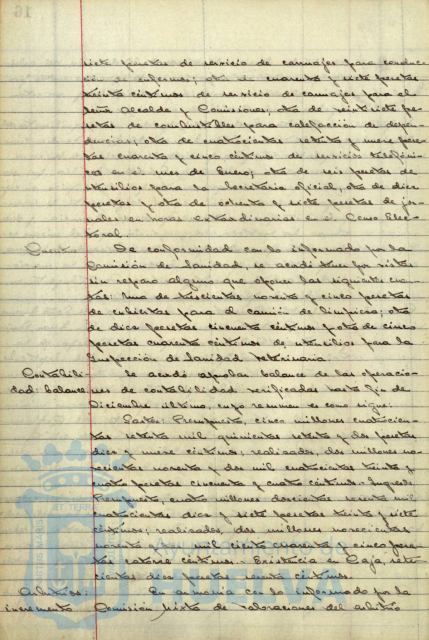 siete pesetas de servicio de carruajes para conduc-
ción de enfermos; otra de cuarenta y siete pesetas
treinta céntimos de servicio de carruajes para el
señor Alcalde y Comisiones; otra de veintisiete pe-
setas de combustibles para calefacción de depen-
dencias; otra de cuatrocientas setenta y nueve pese-
tas cuarenta y cinco céntimos de servicios telefóni-
cos en el mes de Enero; otra de seis pesetas de
utensilios para la Secretaría oficial, otra de diez
pesetas y otra de ochenta y siete pesetas de jor-
nales en horas extraordinarias en el Censo Elec-
toral.
Cuentas De conformidad con lo informado por la
Comisión de Sanidad, se acordó tener por vistas
sin reparo alguno que oponer las siguientes cuen-
tas: Una de trescientas noventa y cinco pesetas
de cubiertas para el camión de limpieza; otra
de diez pesetas cincuenta céntimos y otra de cinco
pesetas cuarenta céntimos de utensilios para la
Inspección de Sanidad Veterinaria.
Contabili- Se acordó aprobar balance de las operacio-
dad: balance nes de contabilidad verificadas hasta fin de
Diciembre último, cuyo resumen es como sigue:
Gastos: Presupuesto, cinco millones cuatrocien-
tas setenta mil quinientas setenta y dos pesetas
diez y nueve céntimos; realizados, dos millones no-
vecientas noventa y dos mil cuatrocientas treinta y
cuatro pesetas cincuenta y cuatro céntimos. - Ingresos:
Presupuesto, cuatro millones doscientas sesenta mil
cuatrocientas diez y siete pesetas treinta y siete
céntimos; realizados, dos millones novecientas
noventa y mil ciento cuarenta y cinco pese-
tas catorce céntimos. - Existencia en Caja, sete-
cientas diez pesetas sesenta céntimos.
Arbitrios: En armonía con lo informado por la
incremento Comisión Mixta de valoraciones del arbitrio